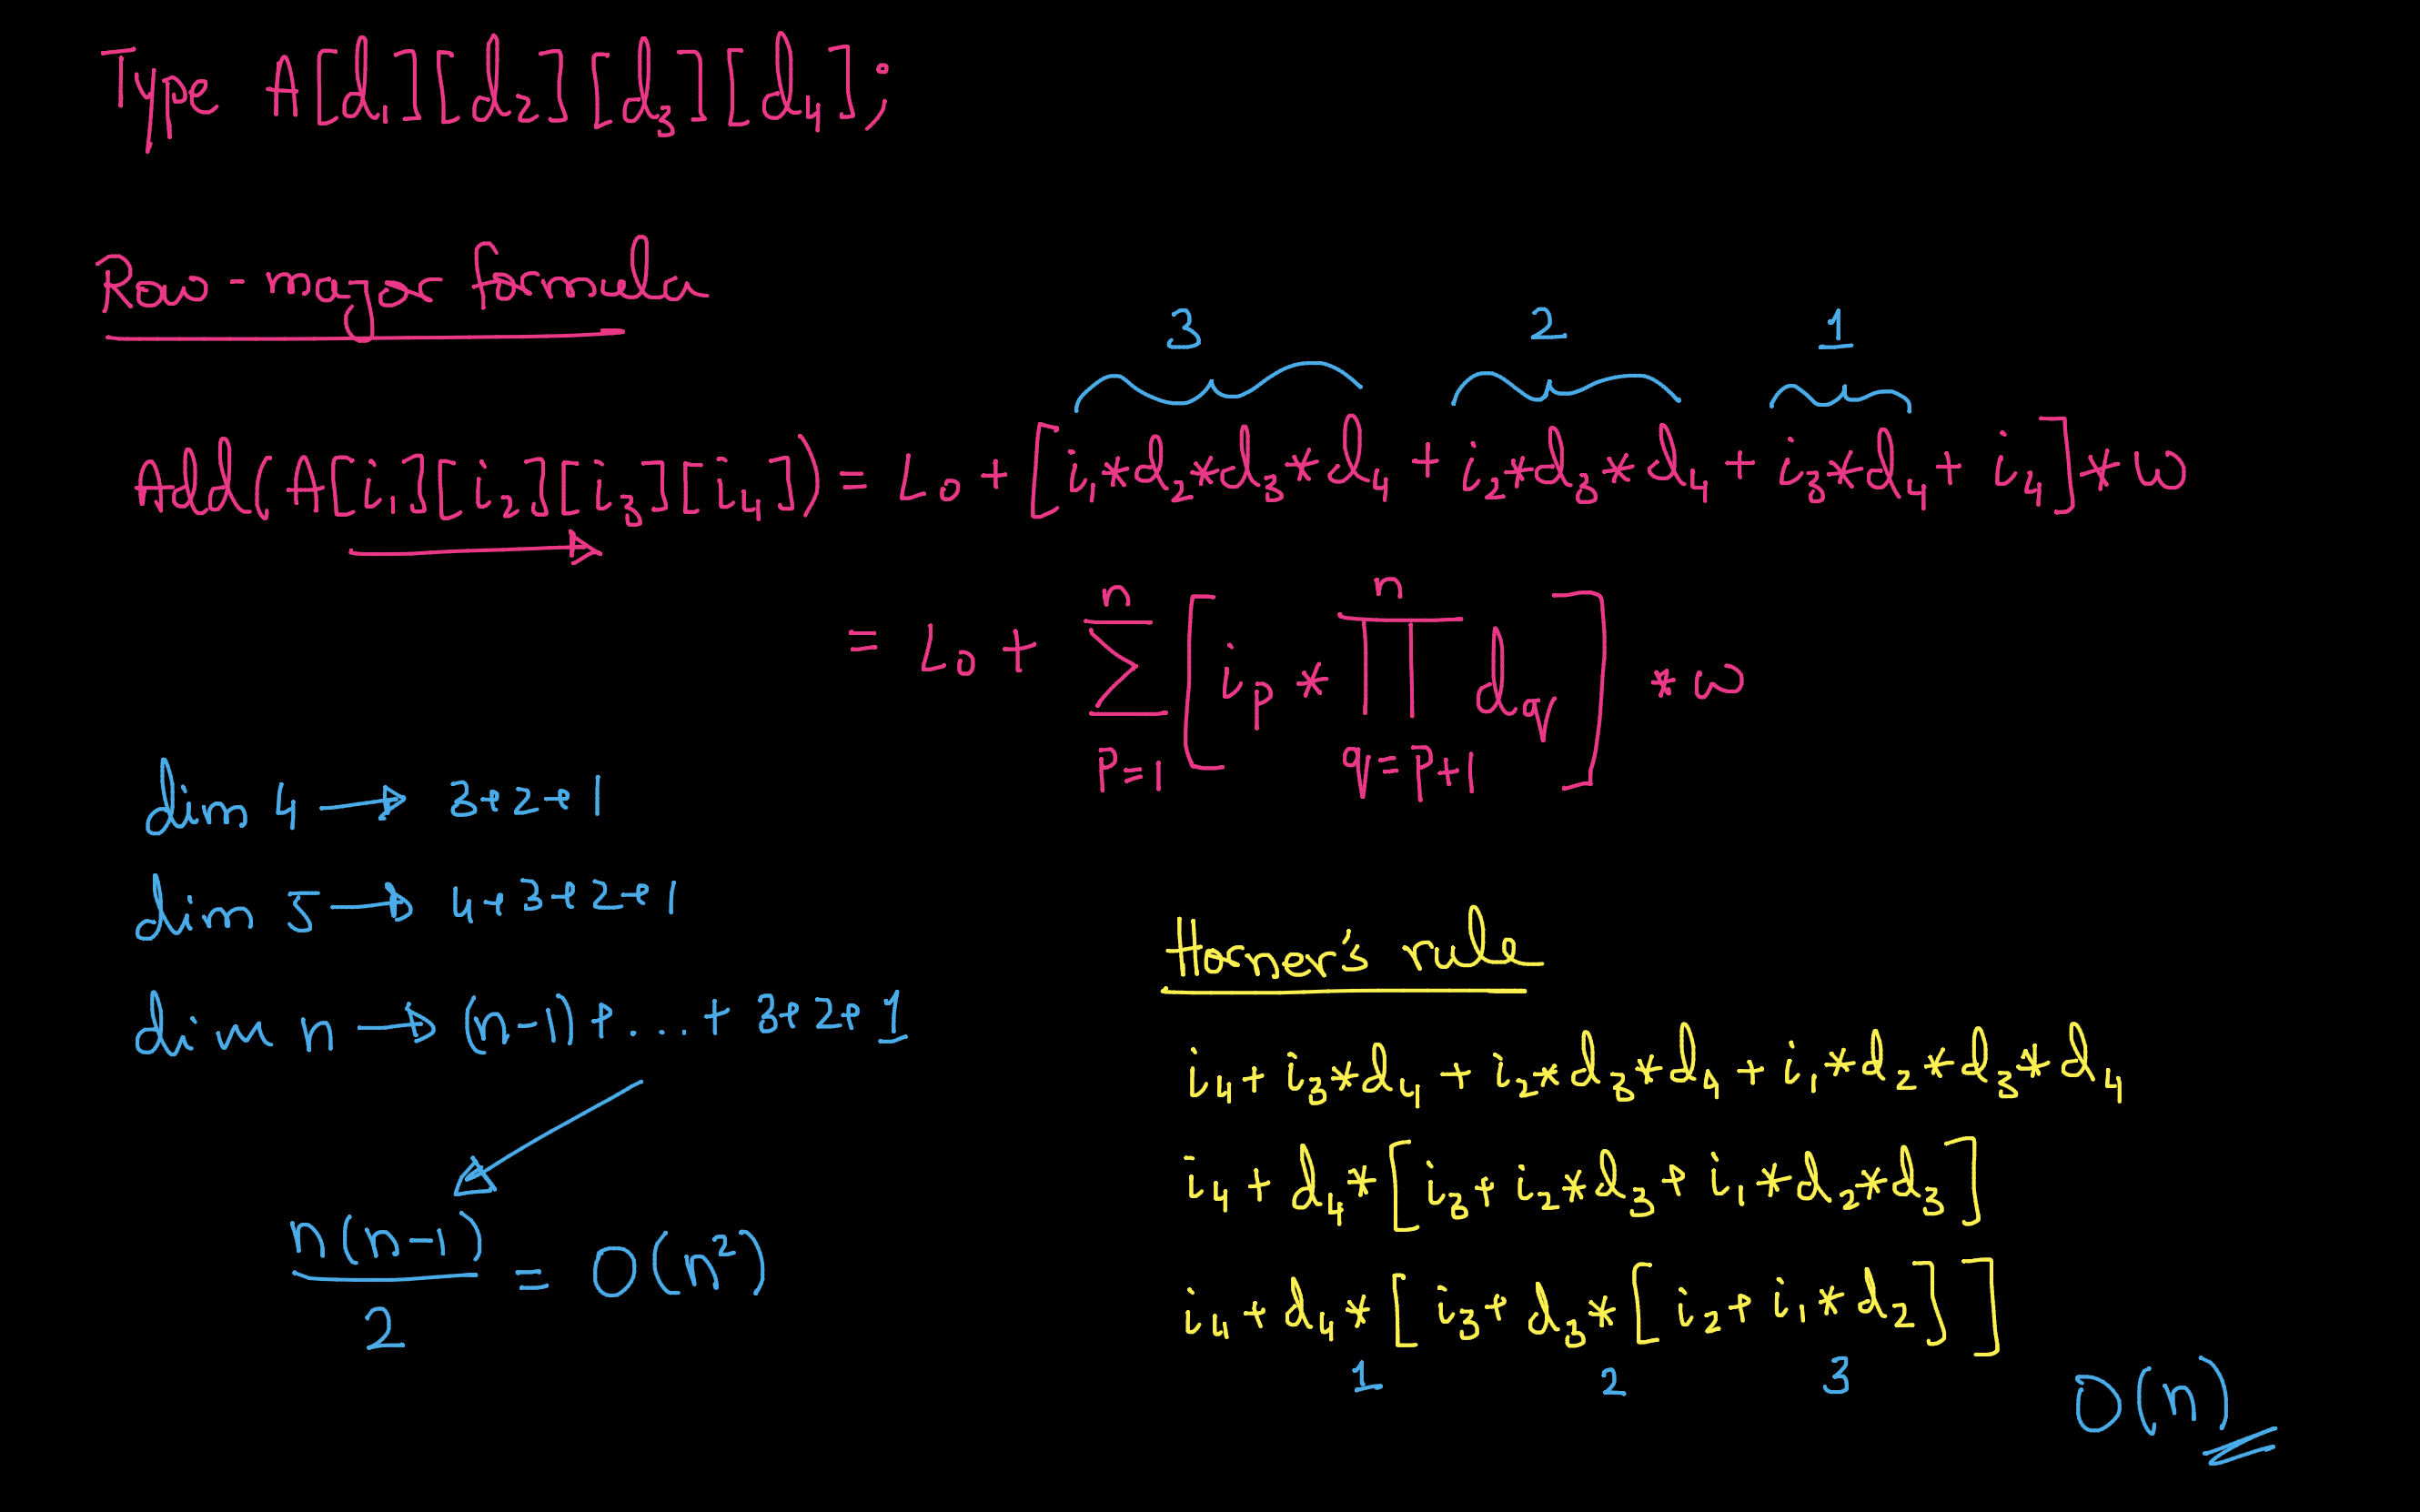 Type A[d₁][d₂][d₃][d₄];
Row-major formula
3 2 1
Add(A[i₁][i₂][i₃][i₄]) = L₀ + [i₁*d₂*d₃*d₄ + i₂*d₃*d₄ + i₃*d₄ + i₄]*w
= L₀ + ∑ₚ₌₁ⁿ [iₚ * ∏_{q=p+1}^{n} d_q] * w
dim 4 → 3+2+1
dim 5 → 4+3+2+1
dim n → (n-1)+...+3+2+1
n(n-1)/2 = O(n²)
Horner's rule
i₄ + i₃*d₄ + i₂*d₃*d₄ + i₁*d₂*d₃*d₄
i₄ + d₄*[i₃ + i₂*d₃ + i₁*d₂*d₃]
i₄ + d₄*[i₃ + d₃*[i₂ + i₁*d₂]]
1 2 3
O(n)